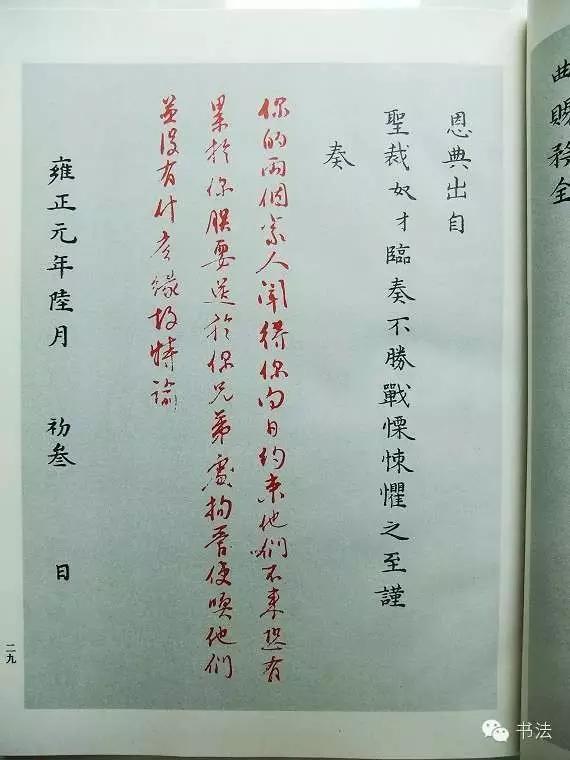 曲賜務全
恩典出自
聖裁奴才臨奏不勝戰慄悚懼之至謹
奏
你的兩個家人聞得你向日約束他們不来恐有
累於你朕要送於你兄弟處拘管使喚他們
並没有什庅緣故特諭
雍正元年陸月 初叁 日
二九
书法